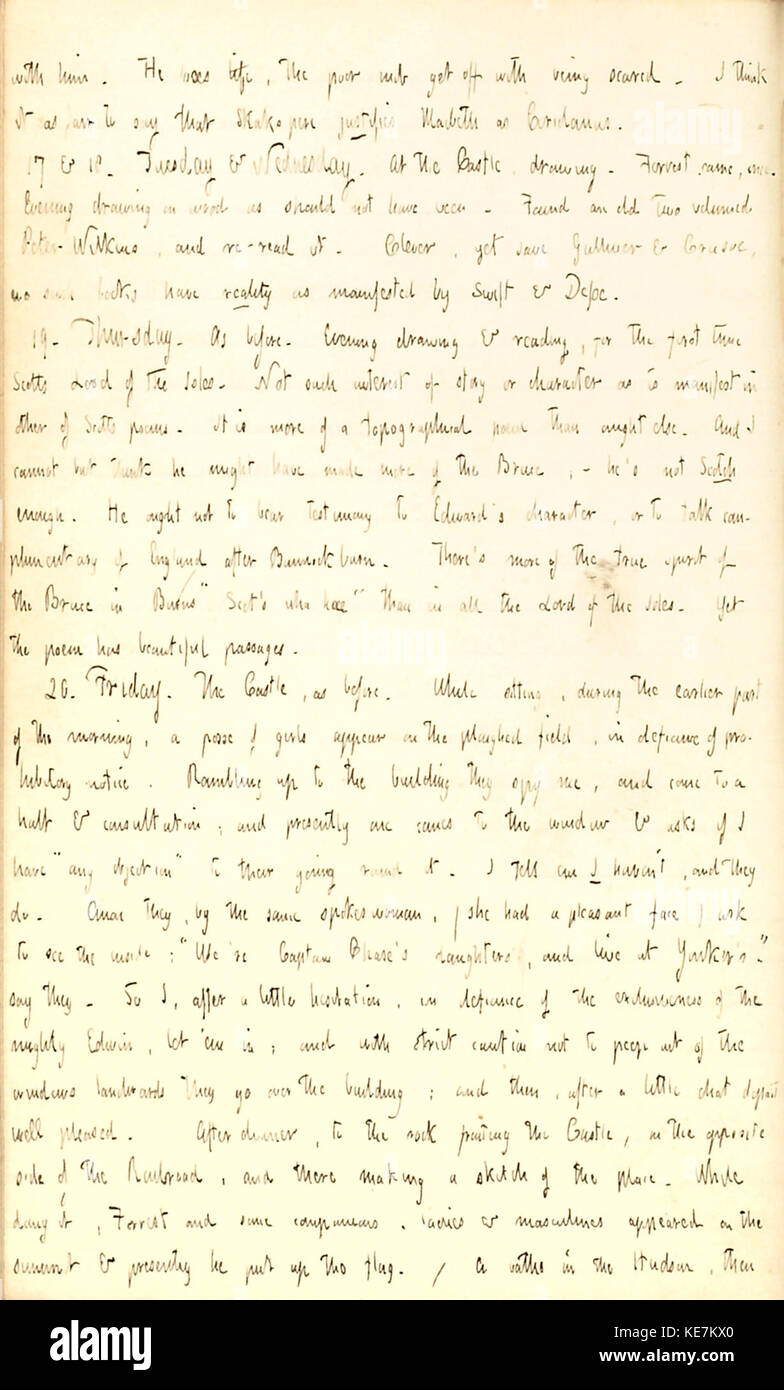 with him. He was left, the poor mob get off with being scared. I think
it as fair to say that Shakspere justifies Macbeth as Coriolanus.
17 & 18. Tuesday & Wednesday. At the Castle, drawing. Forrest came,
Evening drawing on wood as should not have been. Found an old two volumed
Peter Wilkins, and re-read it. Clever, yet save Gulliver & Crusoe,
no such books have reality as manifested by Swift & Defoe.
19. Thursday. As before. Evening drawing & reading, for the first time
Scotts Lord of the Isles. Not such interest of story or character as is manifest in
other of Scotts poems. It is more of a topographical poem than aught else. And I
cannot but think he might have made more of the Bruce, - he's not Scotch
enough. He ought not to bear testimony to Edward's character, or to talk com-
plimentary of England after Bannockburn. There's more of the true spirit of
the Bruce in Burns' "Scot's wha hae" than in all the Lord of the Isles. Yet
the poem has beautiful passages.
20. Friday. The Castle, as before. While sitting, during the earlier part
of the morning, a posse of girls appear on the ploughed field, in defiance of pro-
hibitory notice. Rambling up to the building they spy me, and come to a
halt & consultation; and presently one comes to the window & asks if I
have "any objection" to their going round it. I tell em I haven't, and they
do. Anon they, by the same spokeswoman, (she had a pleasant face) ask
to see the inside; "We're Captain Chase's daughters, and live at Yonkers."
say they. So I, after a little hesitation, in defiance of the exclusiveness of the
mighty Edwin, let 'em in; and with strict caution not to peep out of the
windows landwards they go over the building; and then, after a little chat depart
well pleased. After dinner, to the rock fronting the Castle, on the opposite
side of the Railroad, and there making a sketch of the place. While
doing it, Forrest and some companions, ladies & masculines appeared on the
summit & presently he put up the flag. / A bathe in the Hudson, then
alamy
Image ID: KE7KX0
www.alamy.com